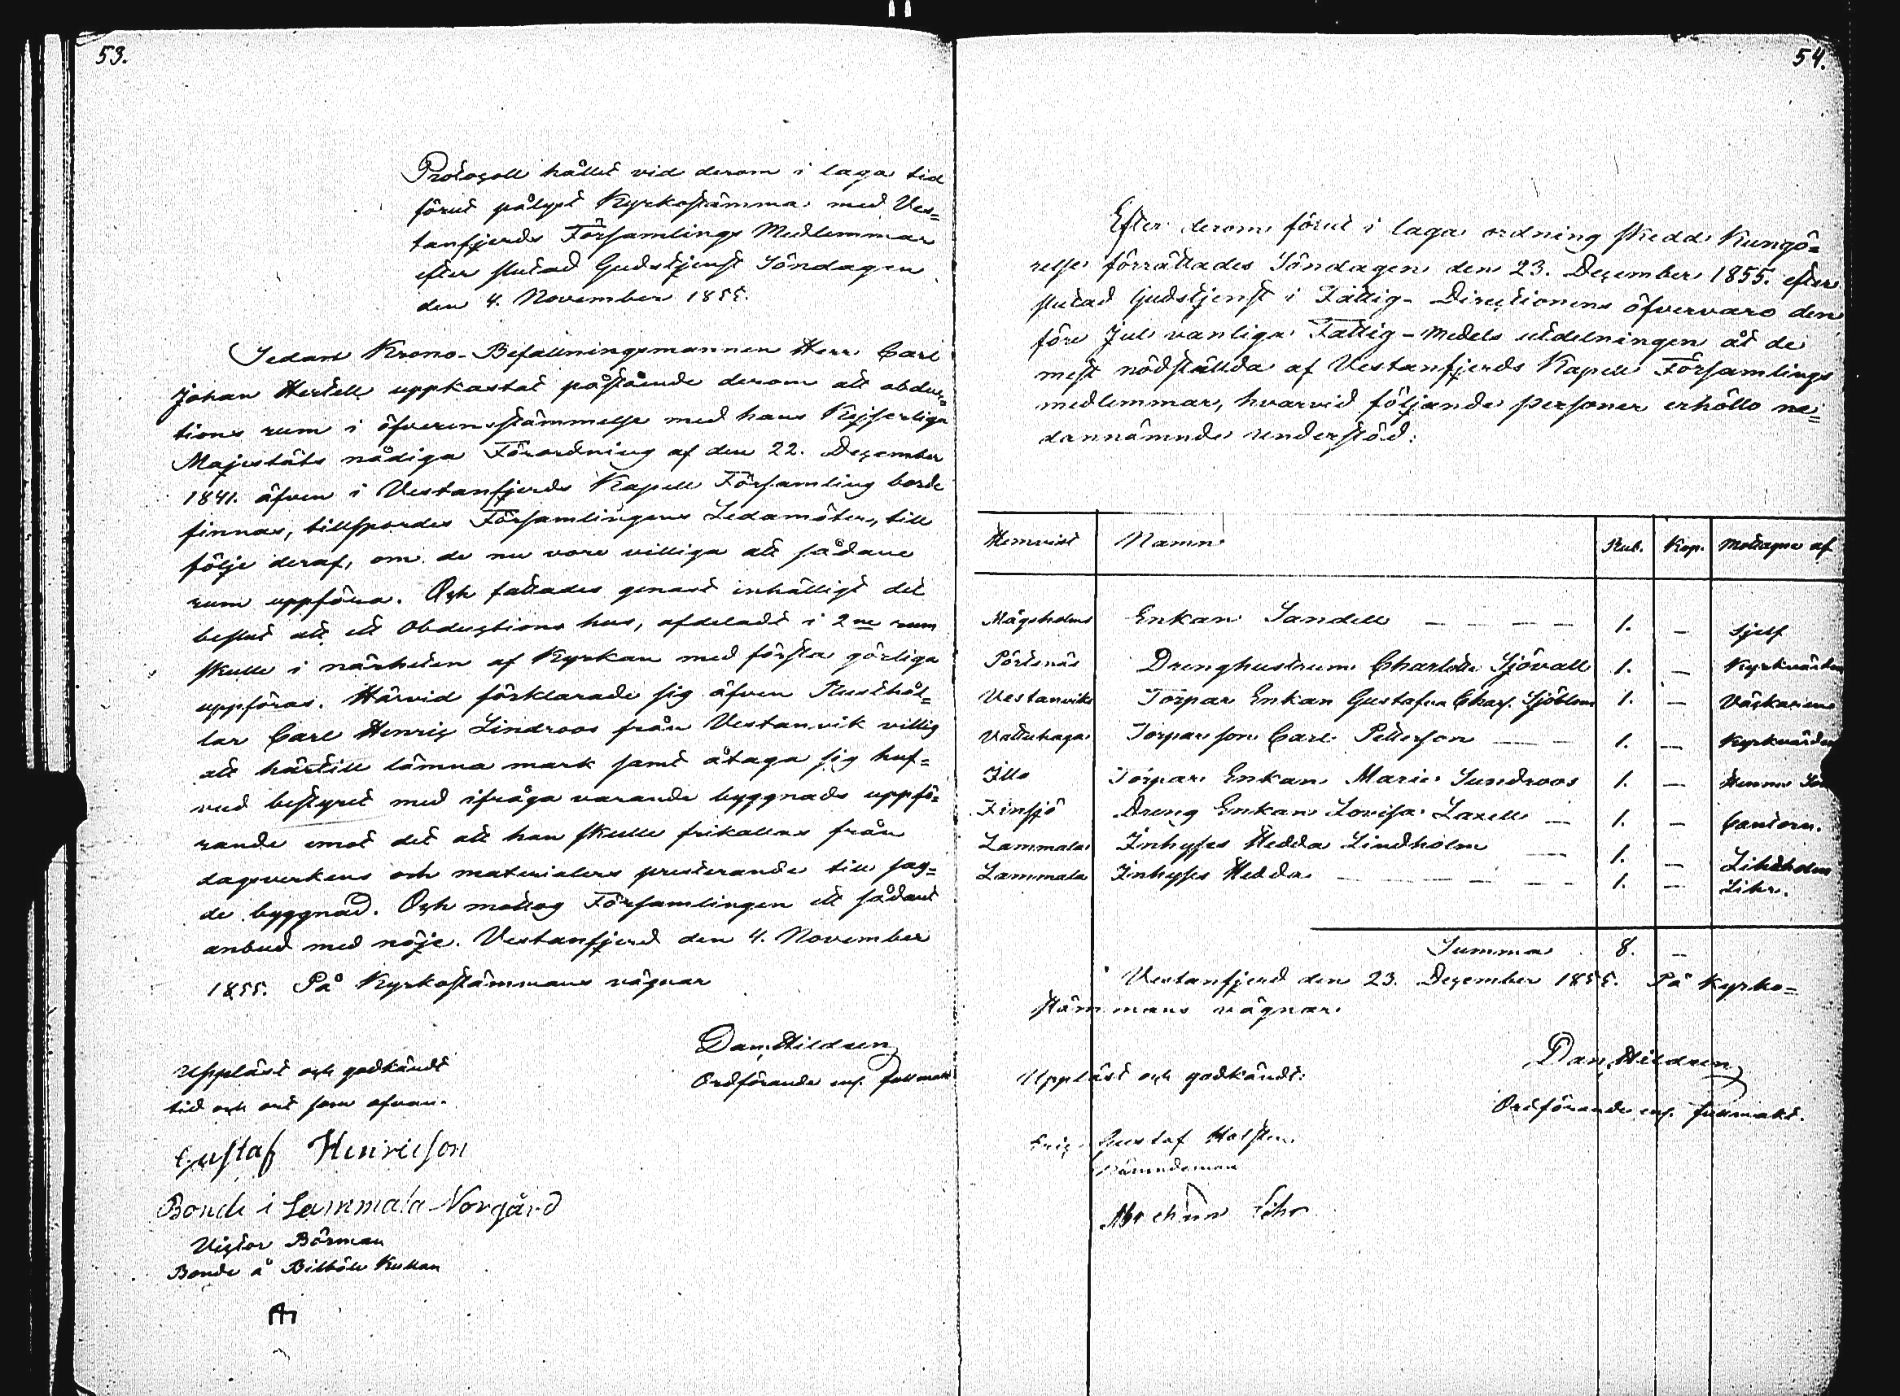 53.
Protocoll hållet vid derom i laga tid
förut pålyst Kyrkostämma med Ves=
tanfjerds Församlings Medlemmar
efter slutad Gudstjenst Söndagen
den 4. November 1855.
Sedan Krono-Befallningsmannen Herr Carl
Johan Hertell uppkastat påstående derom att obduc=
tions rum i öfverensstämmelse med hans Kejserliga
Majestäts nådiga Förordning af den 22. December
1841. äfven i Vestanfjerds Kapell Församling borde
finnas, tillspordes Församlingens Ledamöter, till
följe deraf, om de nu vore villiga att sådane
rum uppföra. Och fattades genast enhälligt det
beslut att ett Obductions hus, afdeladt i 2ne rum
skulle i närheten af Kyrkan med första görliga
uppföras. Härvid förklarade sig äfven Rusthål=
lar Carl Henric Lindroos från Vestanvik villig
att härtill lämna mark samt åtaga sig huf=
vud bestyret med ifråga varande byggnads uppfö=
rande emot det att han skulle frikallas från
dagsverkens och materialiers presterande till sag=
de byggnad. Och mottog Församlingen ett sådant
anbud med nöje. Vestanfjerd den 4. November
1855. På Kyrkostämmans vägnar
Dan. Hildeen
Ordförande enl. fullmakt
Uppläst och godkändt
tid och ort som ofvan.
Gustaf Henricson
Bonde i Lammala Norgård
Victor Börman
Bonde å Billböle Kullan
54.
Efter derom förut i laga ordning skedd Kungö=
relse förrättades Söndagen den 23. December 1855. efter
slutad Gudstjenst i Fattig-Directionens öfvervaro den
före Jul vanliga Fattig-medels utdelningen åt de
mest nödställda af Vestanfjerds Kapell Församlings
medlemmar, hvarvid följande personer erhöllo ne=
dannämnde understöd:
Hemvist Namn Rub. Kop. Mottages af
Mågsholms Enkan Sandell – – – – 1. – Sjelf
Pörtsnäs Drenghustrun Charlotta Sjövall 1. – Kyrkvärden
Vestanviks Torpar Enkan Gustafva Charl. Sjöblom 1. – Väktarinnan
Vattuhaga Torpare son Carl Petterson – – 1. – Kyrkvärden
Illo Torpare Enkan Maria Sundroos 1. – Hennes Son
Finsjö Dreng Enkan Lovisa Laxell – 1. – Cantorn.
Lammala Inhyses Hedda Lindholm – 1. – Lindholm
Lammala Inhyses Hedda – – – – 1. – Lihr.
Summa 8. –
Vestanfjerd den 23. December 1855. På Kyrko=
stämmans vägnar
Dan. Hildeen
Ordförande enl. fullmakt.
Uppläst och godkändt:
Eric Gustaf Holsten
Nämndeman
Abraham Lihr